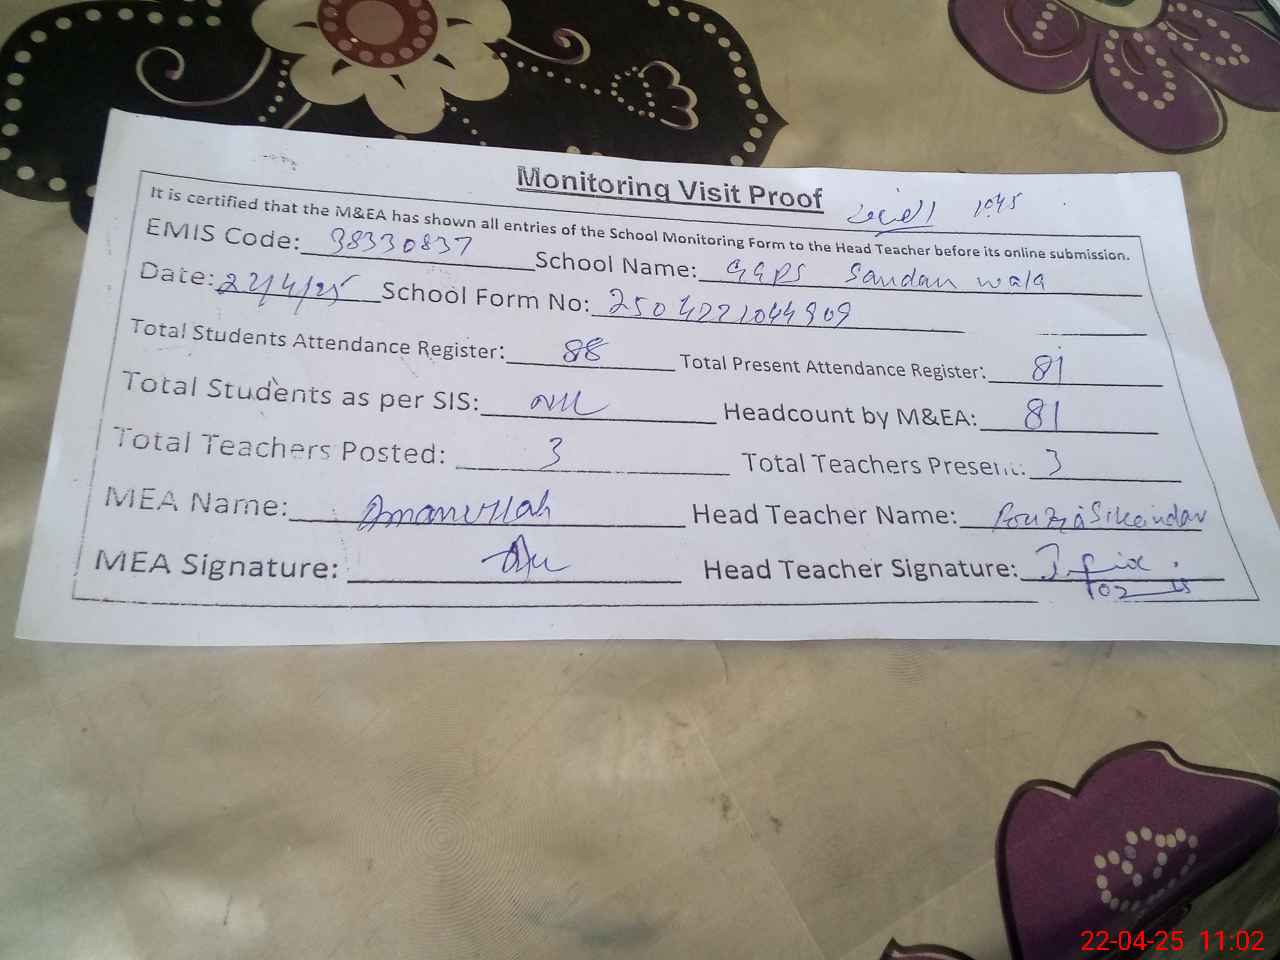 Monitoring Visit Proof
10:45
It is certified that the M&EA has shown all entries of the School Monitoring Form to the Head Teacher before its online submission.
EMIS Code: 38330837 School Name: GGPS Sandan wala
Date: 22/4/25 School Form No: 2504221044909
Total Students Attendance Register: 88 Total Present Attendance Register: 81
Total Students as per SIS: Nil Headcount by M&EA: 81
Total Teachers Posted: 3 Total Teachers Present: 3
MEA Name: Amanullah Head Teacher Name: Fouzia Sikandar
MEA Signature: Head Teacher Signature:
22-04-25 11:02